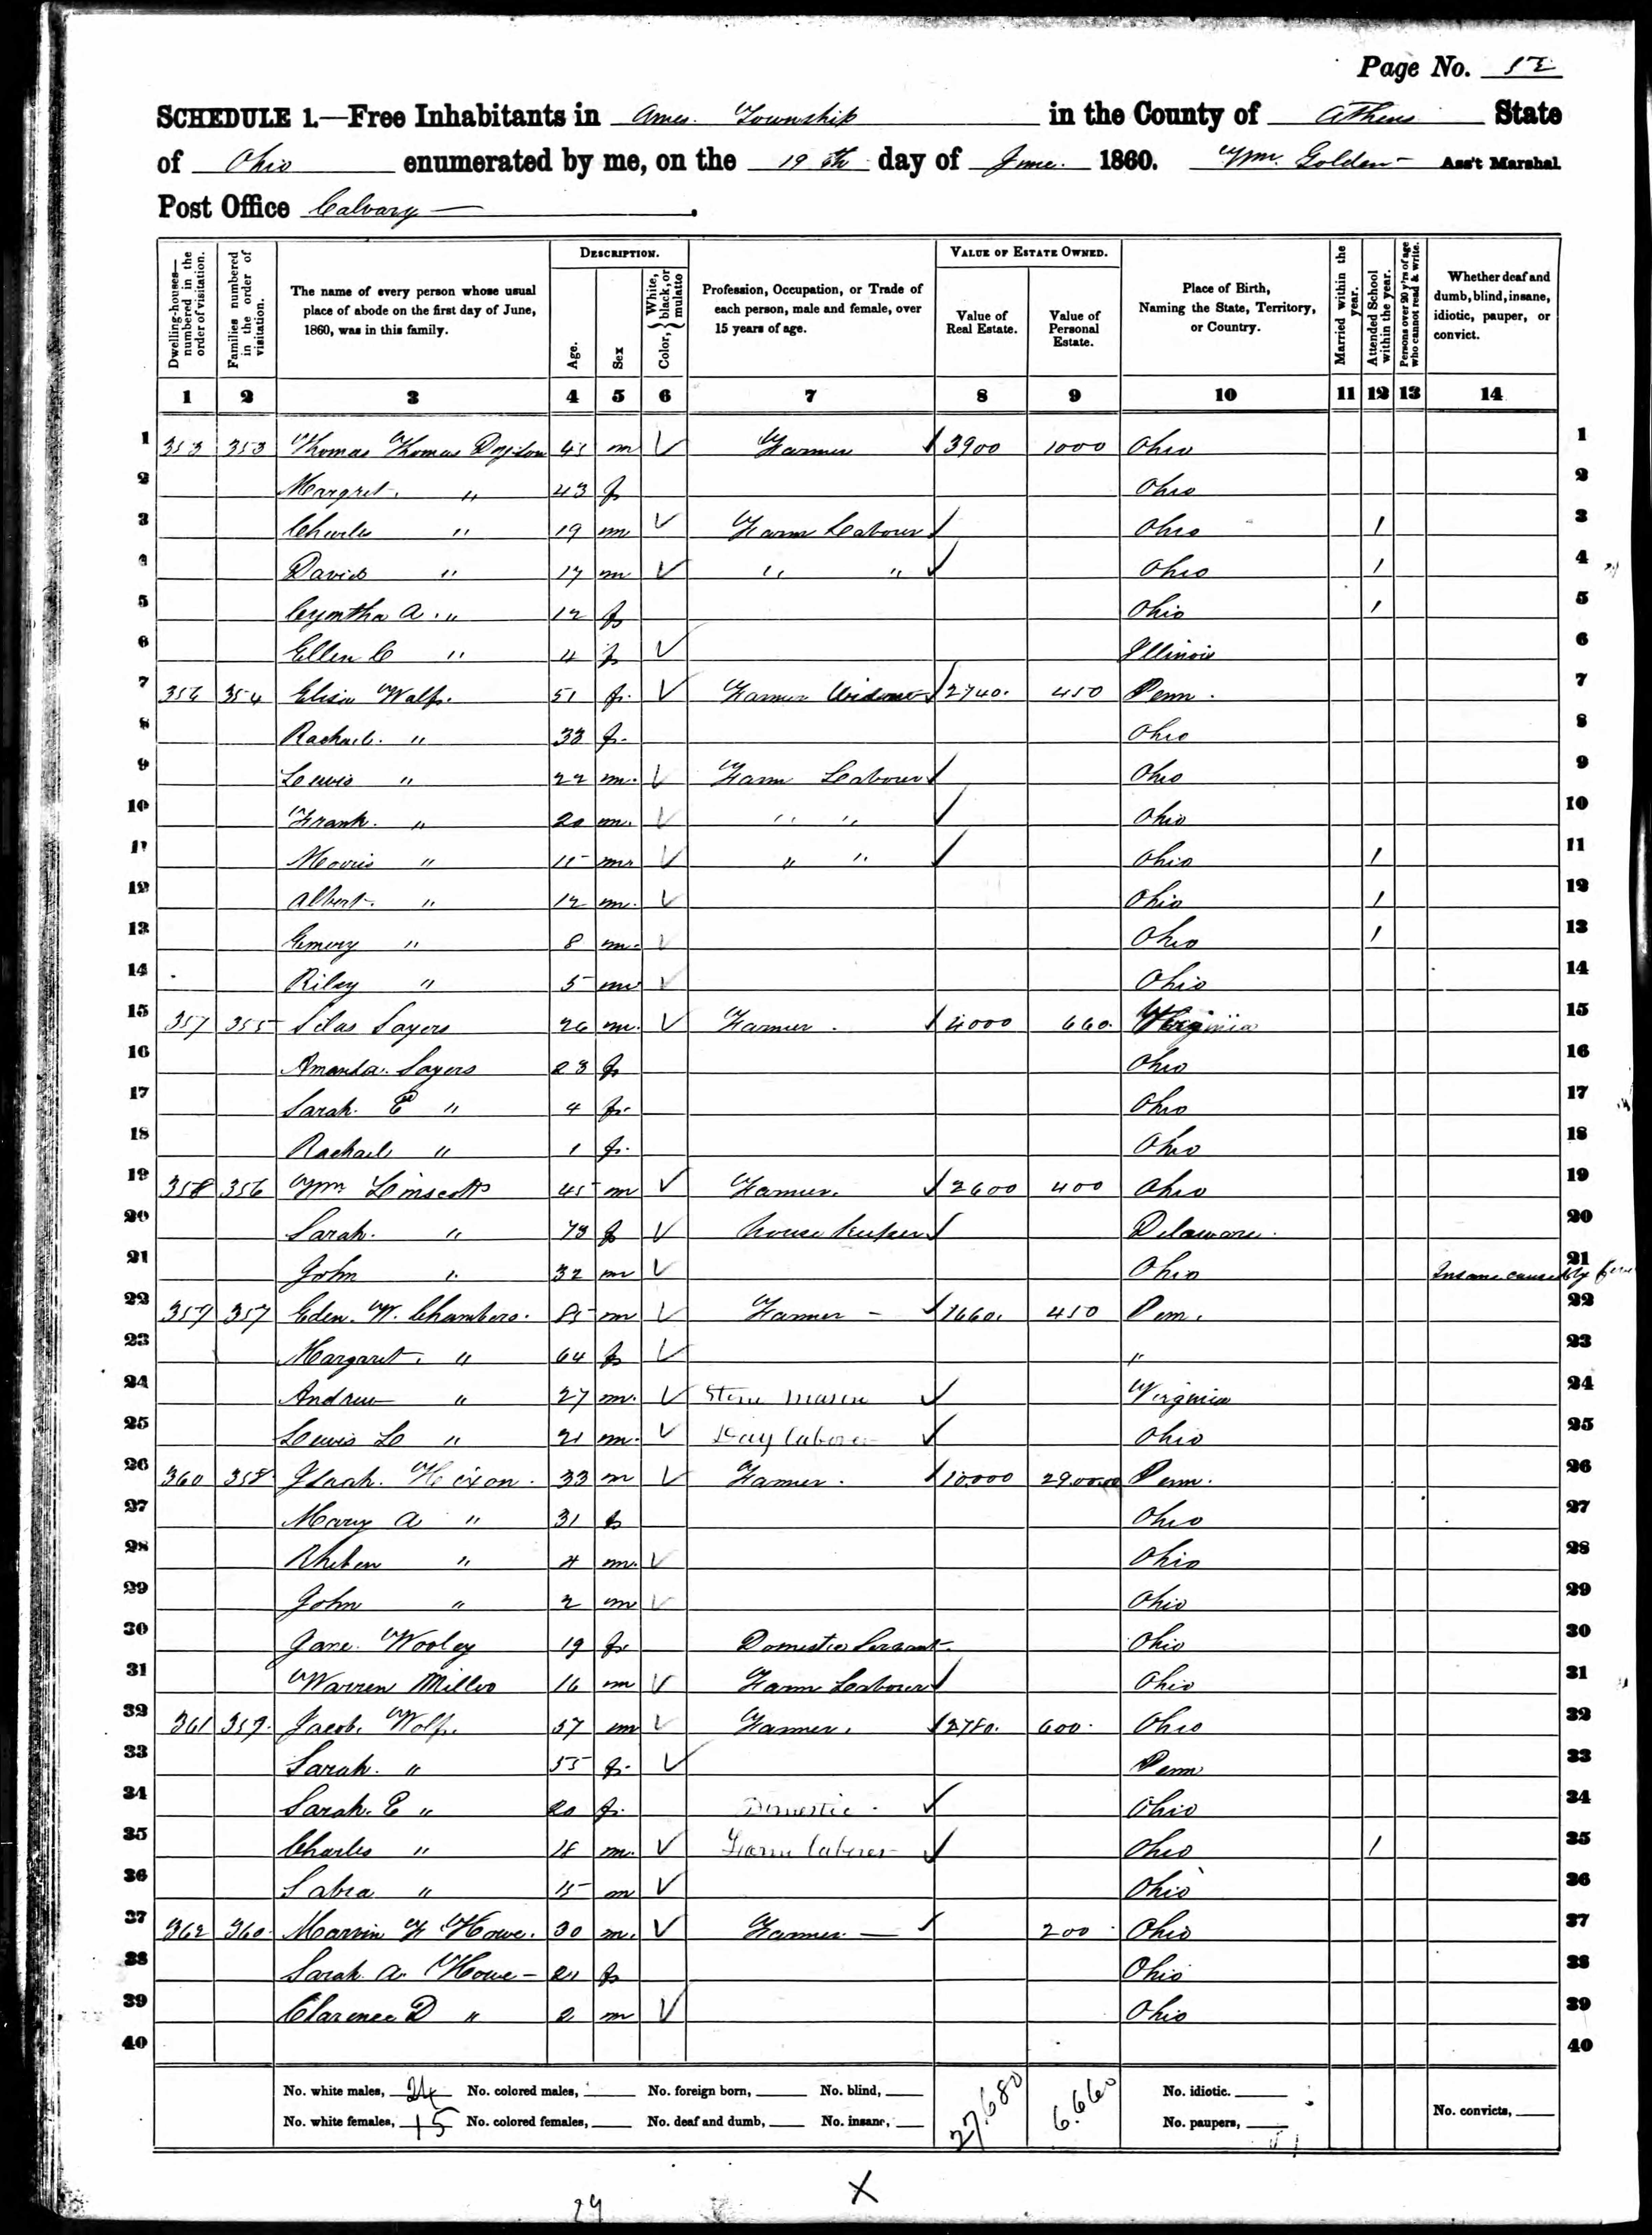 Page No. 52
SCHEDULE 1.—Free Inhabitants in Ames Township in the County of Athens State
of Ohio enumerated by me, on the 19th day of June. 1860. Wm. Golden Ass't Marshal.
Post Office Calvary
Dwelling-houses—numbered in the order of visitation.
Families numbered in the order of visitation.
The name of every person whose usual place of abode on the first day of June, 1860, was in this family.
DESCRIPTION.
Age.
Sex
Color, White, black, or mulatto
Profession, Occupation, or Trade of each person, male and female, over 15 years of age.
VALUE OF ESTATE OWNED.
Value of Real Estate.
Value of Personal Estate.
Place of Birth, Naming the State, Territory, or Country.
Married within the year.
Attended School within the year.
Persons over 20 y'rs of age who cannot read & write.
Whether deaf and dumb, blind, insane, idiotic, pauper, or convict.
1 2 3 4 5 6 7 8 9 10 11 12 13 14
1 353 353 Thomas Thomas 45 m Farmer 3900 1000 Ohio 1
2 Margret. " 43 f Ohio 2
3 Charles " 19 m Farm Labourer Ohio 1 3
4 David " 17 m " " Ohio 1 4
5 Cyntha A. " 12 f Ohio 1 5
6 Ellen C " 4 f Illinois 6
7 356 354 Elisa Wolf. 51 f. Farmer Widow 2740. 450 Penn. 7
8 Rachael. " 33 f. Ohio 8
9 Lewis " 22 m. Farm Labourer Ohio 9
10 Frank. " 20 m. " " Ohio 10
11 Morris " 15 m " " Ohio 1 11
12 Albert. " 12 m. Ohio 1 12
13 Emery " 8 m. Ohio 1 13
14 Riley " 5 m Ohio 14
15 357 355 Silas Sayers 26 m. Farmer. 4000 660. Virginia 15
16 Amanda. Sayers 23 f Ohio 16
17 Sarah. E " 4 f. Ohio 17
18 Rachael " 1 f. Ohio 18
19 358 356 Wm Linscott 45 m Farmer. 2600 400 Ohio 19
20 Sarah. " 73 f house keeper Delaware. 20
21 John " 32 m Ohio Insane caused by 21
22 359 357 Eden. W. Chambers. 85 m Farmer 1660. 450 Penn. 22
23 Margaret. " 64 f " 23
24 Andrew " 27 m. Stone Mason Virginia 24
25 Lewis L " 21 m. Day laborer Ohio 25
26 360 358 Isaah. Hixon. 33 m Farmer. 10000 2900.00 Penn. 26
27 Mary A " 31 f Ohio 27
28 Rheben " 4 m. Ohio 28
29 John " 2 m Ohio 29
30 Jane. Wooley 19 f. Domestic Servant. Ohio 30
31 Warren Miller 16 m Farm Labourer Ohio 31
32 361 359. Jacob. Wolf. 57 m Farmer. 2780. 600. Ohio 32
33 Sarah. " 55 f. Penn 33
34 Sarah. E " 20 f. Domestic. Ohio 34
35 Charles " 18 m. Farm laborer Ohio 1 35
36 Sabra " 15 m Ohio 36
37 362 360. Marvin F Howe. 30 m. Farmer 200. Ohio 37
38 Sarah A. Howe 21 f Ohio 38
39 Clarence D " 2 m Ohio 39
40 40
No. white males, 24 No. colored males, No. foreign born, No. blind, 27,680 6.660 No. idiotic.
No. white females, 15 No. colored females, No. deaf and dumb, No. insane, No. paupers, No. convicts,
X
29